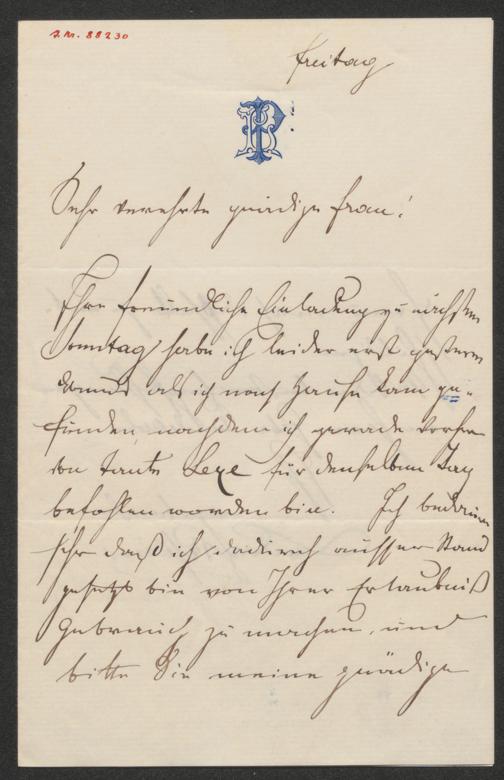 J.N. 88230
Freitag
Sehr verehrte gnädige Frau!
Ihre freundliche Einladung zu nächsten
Sonntag habe ich leider erst gestern
Abends als ich nach Hause kam ge-
funden, nachdem ich gerade vorher
von Tante für denselben Tag
befohlen worden bin. Ich bedaure
sehr daß ich dadurch ausser Stand
gesetzt bin von Ihrer Erlaubniß
Gebrauch zu machen, und
bitte Sie meine gnädige